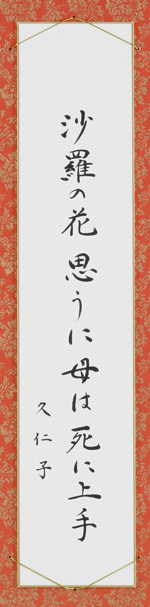 沙羅の花思うに母は死に上手
久仁子